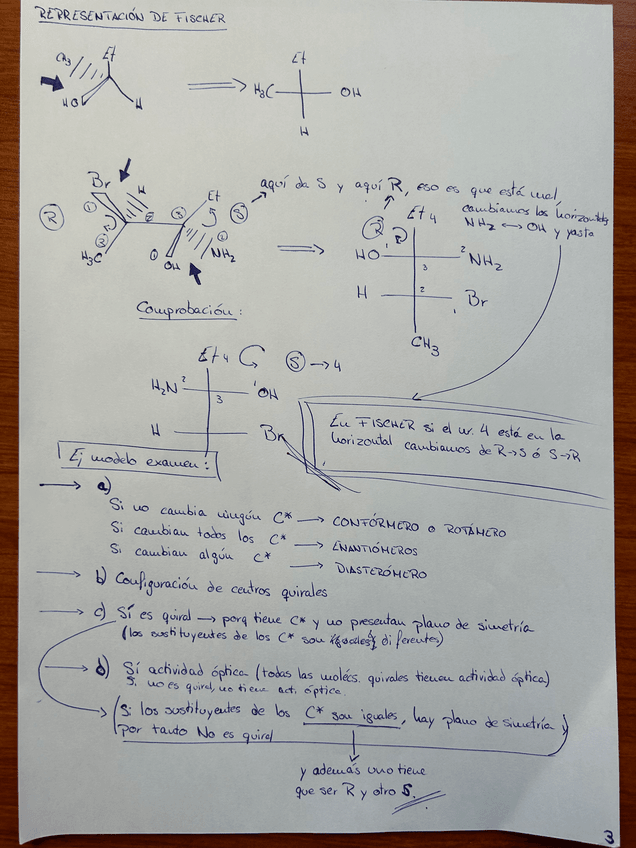 REPRESENTACIÓN DE FISCHER
Et
CH3
HO
H
Et
H3C
OH
H
Br
H
R
1
2
H3C
3
Et
S
1
OH
2
NH2
aquí da S y aquí R, eso es que está mal,
cambiamos los horizontales
NH2 ↔ OH y yasta
R
Et 4
1
HO
2
NH2
3
H
2
Br
1
CH3
Comprobación:
Et 4
S → 4
H2N 2
1 OH
3
H
Br
1
En FISCHER si el nr. 4 está en la
horizontal cambiamos de R→S ó S→R
Ej modelo examen:
→ a)
Si no cambia ningún C* → CONFÓRMERO o ROTÁMERO
Si cambian todos los C* → ENANTIÓMEROS
Si cambian algún C* → DIASTERÓMERO
→ b) Configuración de centros quirales
→ c) Sí es quiral → porq tiene C* y no presentan plano de simetría
(los sustituyentes de los C* son diferentes)
→ d) Sí actividad óptica (todas las molécs. quirales tienen actividad óptica)
Si no es quiral, no tiene act. óptica.
Si los sustituyentes de los C* son iguales, hay plano de simetría y
por tanto No es quiral
y además uno tiene
que ser R y otro S.
3